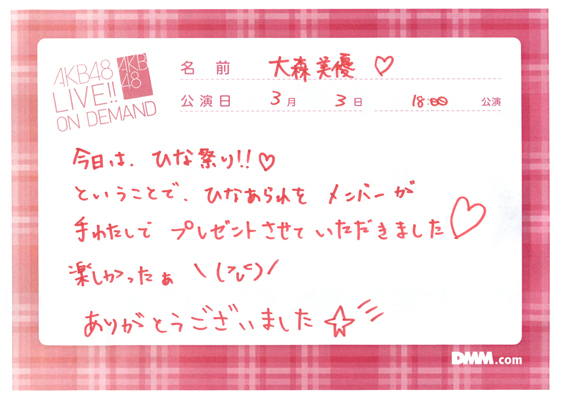 AKB48
LIVE!!
ON DEMAND
AKB
48
名前 大森美優 ♡
公演日 3月 3日 18:00 公演
今日は、ひな祭り!!♡
ということで、ひなあられを メンバーが
手わたしで プレゼントさせていただきました♡
楽しかったぁ
ありがとうございました☆
DMM.com